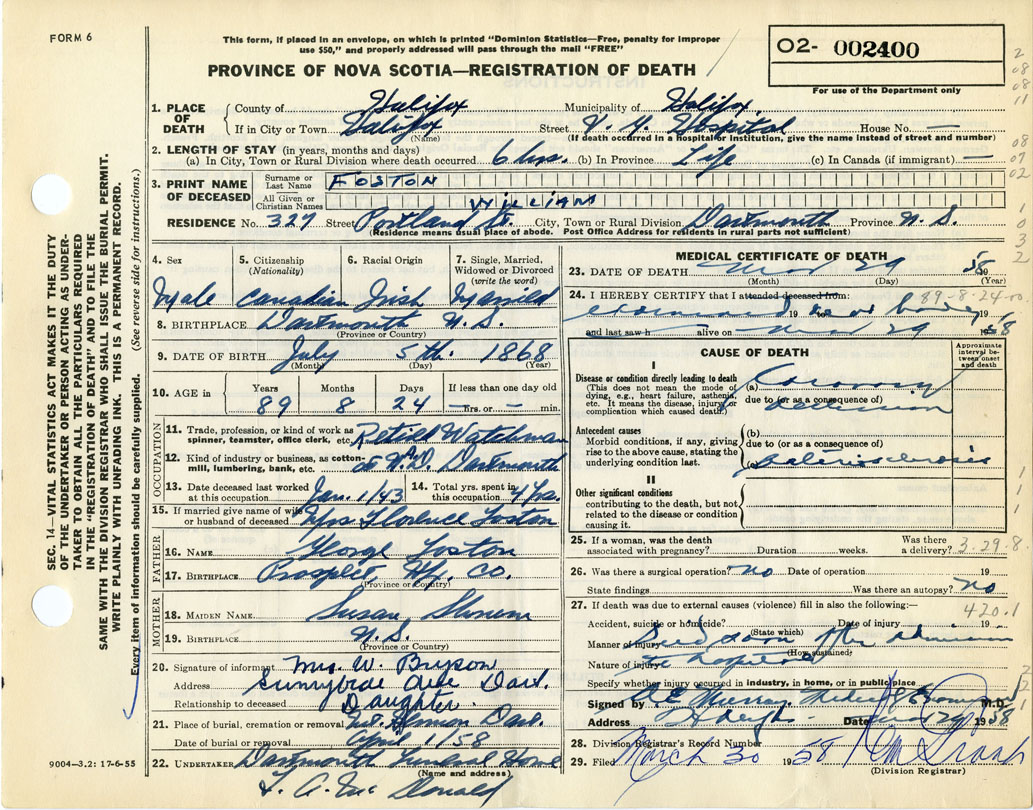 FORM 6
This form, if placed in an envelope, on which is printed "Dominion Statistics—Free, penalty for improper
use $50," and properly addressed will pass through the mail "FREE"
PROVINCE OF NOVA SCOTIA—REGISTRATION OF DEATH
O2- 002400
For use of the Department only
1. PLACE OF DEATH
County of Halifax Municipality of Halifax
If in City or Town Halifax Street V. G. Hospital House No. —
(Name) (If death occurred in a hospital or institution, give the name instead of street and number)
2. LENGTH OF STAY (in years, months and days)
(a) In City, Town or Rural Division where death occurred 6 hrs. (b) In Province Life (c) In Canada (if immigrant) —
3. PRINT NAME OF DECEASED
Surname or Last Name FOSTON
All Given or Christian Names WILLIAM
RESIDENCE No. 327 Street Portland St. City, Town or Rural Division Dartmouth Province N. S.
(Residence means usual place of abode. Post Office Address for residents in rural parts not sufficient)
4. Sex 5. Citizenship (Nationality) 6. Racial Origin 7. Single, Married, Widowed or Divorced (write the word)
Male Canadian Irish Married
8. BIRTHPLACE Dartmouth N. S.
(Province or Country)
9. DATE OF BIRTH July 5th. 1868
(Month) (Day) (Year)
10. AGE in Years Months Days If less than one day old
89 8 24 — hrs. or — min.
11. Trade, profession, or kind of work as spinner, teamster, office clerk, etc. Watchman
12. Kind of industry or business, as cotton-mill, lumbering, bank, etc. at Dartmouth
13. Date deceased last worked at this occupation Jan. 1/43 14. Total yrs. spent in this occupation 4 yrs.
15. If married give name of wife or husband of deceased Mrs Florence Foston
OCCUPATION
FATHER
16. NAME George Foston
17. BIRTHPLACE Hfx. Co.
(Province or Country)
MOTHER
18. MAIDEN NAME Susan
19. BIRTHPLACE N. S.
(Province or Country)
20. Signature of informant Mrs. W. Bryson
Address Sunnybrae Ave Dart.
Relationship to deceased Daughter
21. Place of burial, cremation or removal Mt. Hermon Dart.
Date of burial or removal April 1/58
22. UNDERTAKER Dartmouth Funeral Home
(Name and address)
MEDICAL CERTIFICATE OF DEATH
23. DATE OF DEATH Mar 29 1958
(Month) (Day) (Year)
24. I HEREBY CERTIFY that I attended deceased from:
89-8-24-
examined body
and last saw h alive on Mar 29 1958
CAUSE OF DEATH
Approximate interval between onset and death
I
Disease or condition directly leading to death
(This does not mean the mode of dying, e.g., heart failure, asthenia, etc. It means the disease, injury, or complication which caused death.)
(a) Coronary
due to (or as a consequence of)
occlusion
Antecedent causes
Morbid conditions, if any, giving rise to the above cause, stating the underlying condition last.
(b)
due to (or as a consequence of)
(c)
II
Other significant conditions
contributing to the death, but not related to the disease or condition causing it.
25. If a woman, was the death associated with pregnancy? Duration weeks. Was there a delivery?
3.29.8
26. Was there a surgical operation? no Date of operation 19
State findings Was there an autopsy? no
27. If death was due to external causes (violence) fill in also the following:—
420.1
Accident, suicide or homicide? Date of injury 19
(State which)
Manner of injury Died soon after admission
(How sustained)
Nature of injury to hospital
Specify whether injury occurred in industry, in home, or in public place
Signed by Murray Medical Examiner M.D.
Address Date 29 1958
28. Division Registrar's Record Number
29. Filed March 30 1958
(Division Registrar)
SEC. 14—VITAL STATISTICS ACT MAKES IT THE DUTY
OF THE UNDERTAKER OR PERSON ACTING AS UNDER-
TAKER TO OBTAIN ALL THE PARTICULARS REQUIRED
IN THE "REGISTRATION OF DEATH" AND TO FILE THE
SAME WITH THE DIVISION REGISTRAR WHO SHALL ISSUE THE BURIAL PERMIT.
WRITE PLAINLY WITH UNFADING INK. THIS IS A PERMANENT RECORD.
Every item of information should be carefully supplied. (See reverse side for instructions.)
9004—3.2: 17-6-55